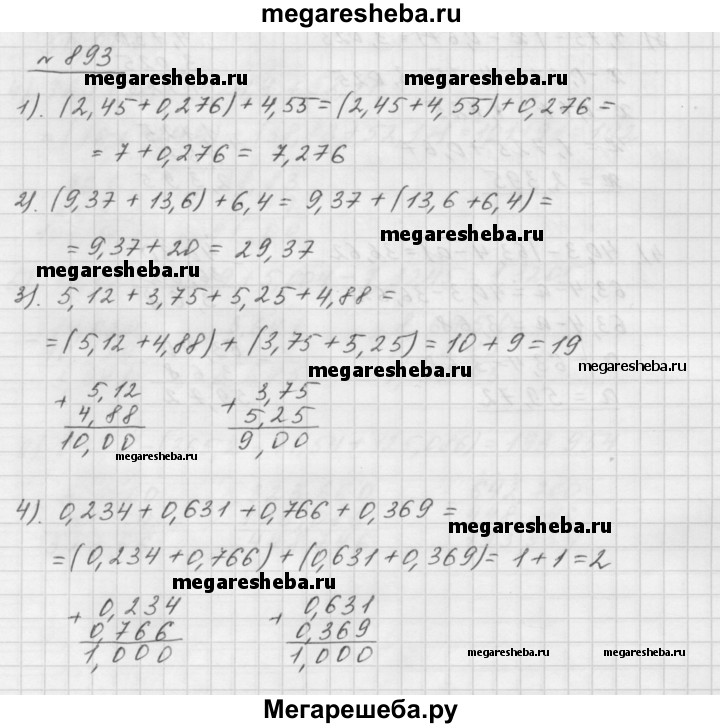 megaresheba.ru
№ 893
megaresheba.ru megaresheba.ru
1). (2,45+0,276)+4,55=(2,45+4,55)+0,276=
=7+0,276= 7,276
2). (9,37+13,6)+6,4= 9,37+(13,6+6,4)=
megaresheba.ru
=9,37+20= 29,37
megaresheba.ru
3). 5,12+3,75+5,25+4,88=
=(5,12+4,88)+(3,75+5,25)=10+9=19
megaresheba.ru megaresheba.ru
+ 5,12 + 3,75
4,88 5,25
10,00 9,00
megaresheba.ru megaresheba.ru
4). 0,234+0,631+0,766+0,369=
megaresheba.ru
=(0,234+0,766)+(0,631+0,369)= 1+1=2
megaresheba.ru
+ 0,234 + 0,631
0,766 0,369
1,000 1,000
megaresheba.ru megaresheba.ru
Мегарешеба.ру